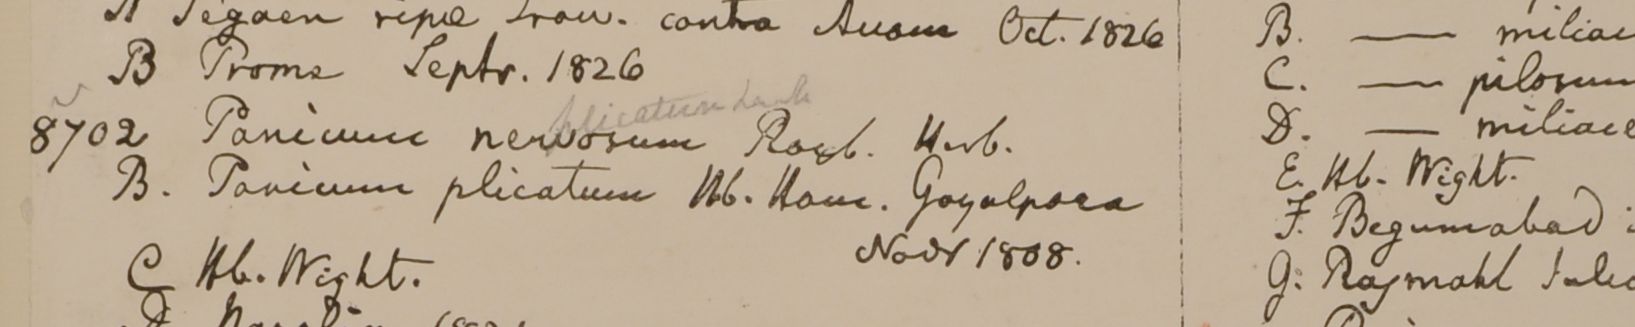 A Segaen ripæ Iraw. contra Avam Oct. 1826
B Prome Septr. 1826
plicatum Lamk
8702 Panicum nervosum Roxb. Herb.
B. Panicum plicatum Hb. Ham. Goyalpara
Novr 1808.
C Hb. Wight.
B. —— miliac
C. —— pilosum
D. —— miliace
E. Hb. Wight.
F. Begumabad
G. Rajmahl